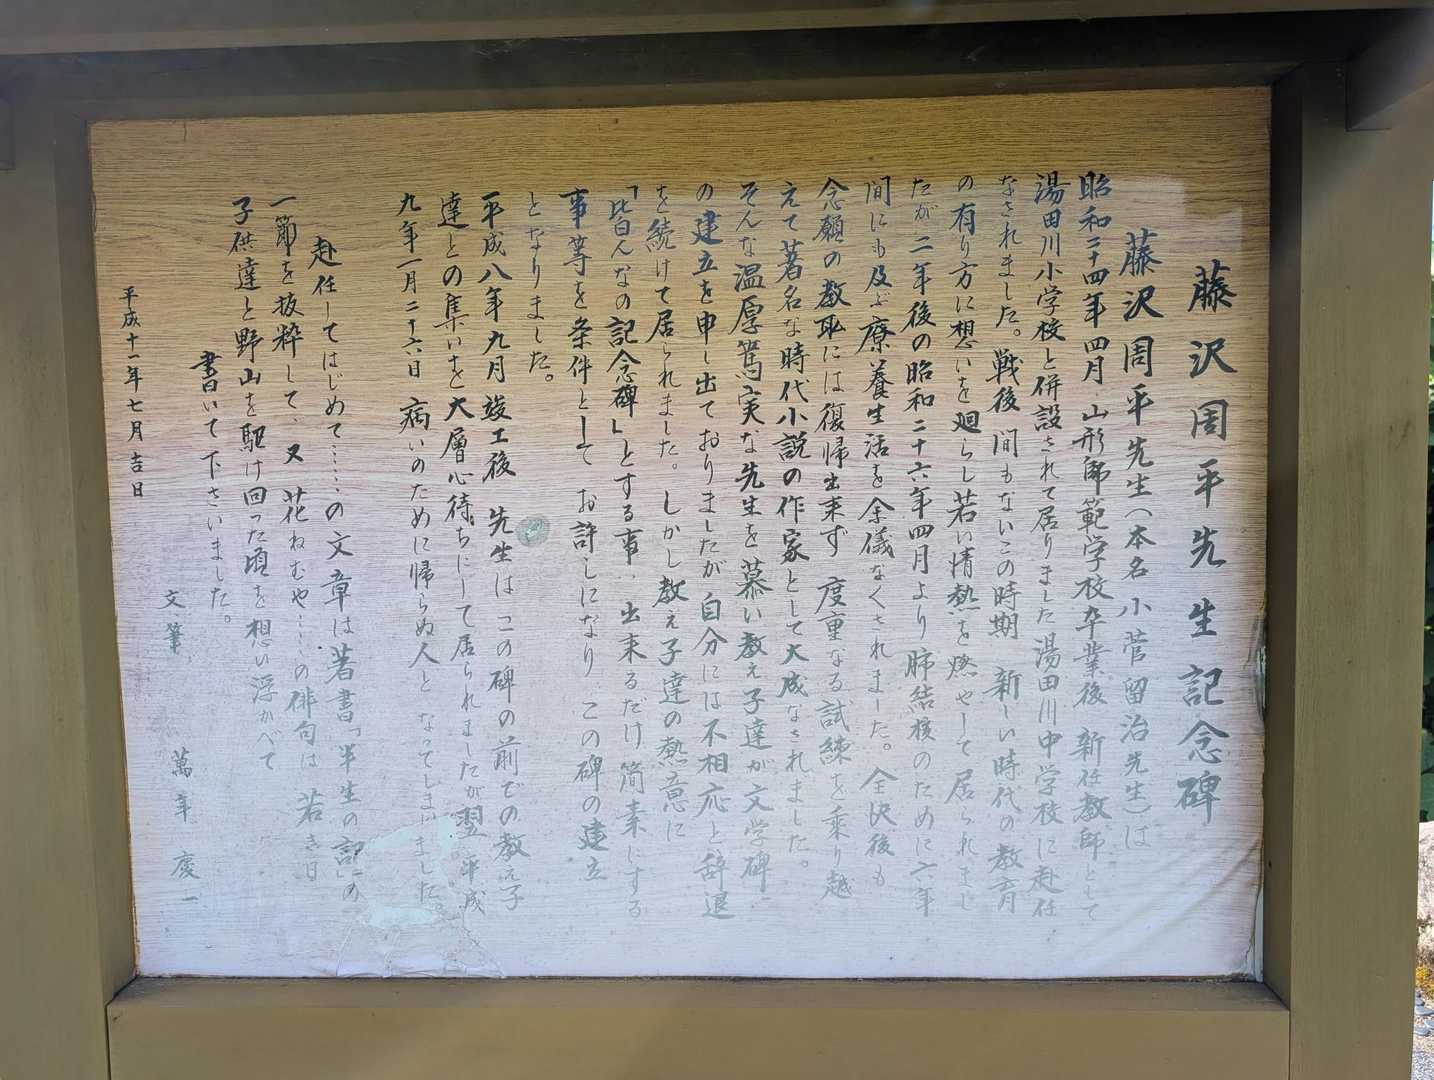 藤沢周平先生記念碑
藤沢周平先生(本名 小菅留治先生)は
昭和二十四年四月 山形師範学校卒業後 新任教師として
湯田川小学校と併設されて居りました湯田川中学校に赴任
なされました。戦後 間もないこの時期 新しい時代の教育
の有り方に想いを廻らし若い情熱を燃やして居られまし
たが 二年後の昭和二十六年四月より肺結核のために六年
間にも及ぶ療養生活を余儀なくされました。全快後も
念願の教職には復帰出来ず 度重なる試練を乗り越
えて著名な時代小説の作家として大成なされました。
そんな温厚篤実な先生を慕い教え子達が文学碑
の建立を申し出ておりましたが自分には不相応と辞退
を続けて居られました。しかし教え子達の熱意に
「皆んなの記念碑」とする事、出来るだけ簡素にする
事等を条件として お許しになり この碑の建立
となりました。
平成八年九月竣工後 先生は この碑の前での教え子
達との集いを大層心待ちにして居られましたが翌 平成
九年一月二十六日 病いのために帰らぬ人と なってしまいました。
赴任してはじめて……の文章は著書「半生の記」の
一節を抜粋して、又 花ねむや……の俳句は 若き日
子供達と野山を駆け回った頃を想い浮かべて
書いて下さいました。
文筆 萬年慶一
平成十一年七月吉日